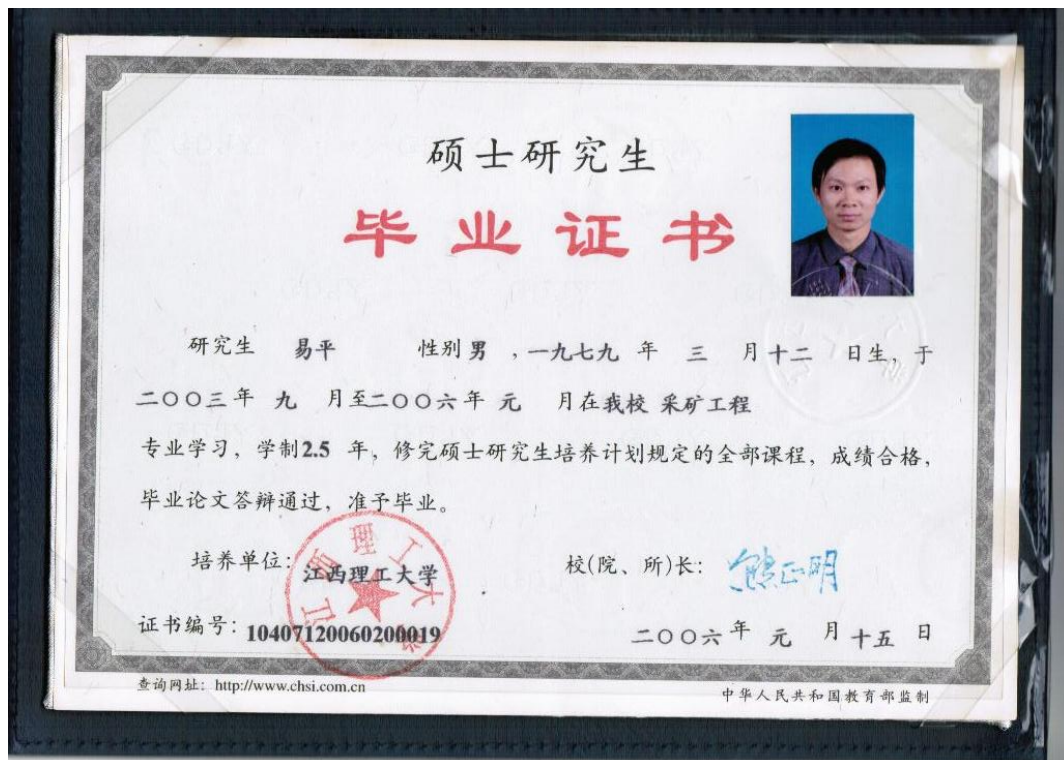 硕士研究生
毕业证书
研究生 易平 性别 男 ,一九七九 年 三 月 十二 日生,于
二〇〇三 年 九 月至 二〇〇六 年 元 月在我校 采矿工程
专业学习,学制 2.5 年,修完硕士研究生培养计划规定的全部课程,成绩合格,
毕业论文答辩通过,准予毕业。
培养单位: 江西理工大学 校(院、所)长: 熊正明
江西理工大学
证书编号: 104071200602000019
二〇〇六 年 元 月 十五 日
查询网址: http://www.chsi.com.cn 中华人民共和国教育部监制